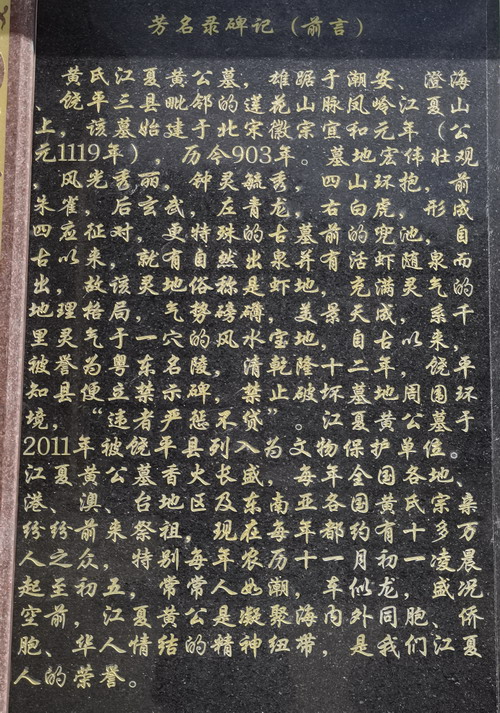 芳名录碑记（前言）
黄氏江夏黄公墓，雄踞于潮安、澄海
、饶平三县毗邻的莲花山脉凤岭江夏山
上，该墓始建于北宋徽宗宣和元年（公
元1119年），历今903年。墓地宏伟壮观
，风光秀丽，钟灵毓秀，四山环抱，前
朱雀，后玄武，左青龙，右白虎，形成
四应征对，更特殊的古墓前的兜池，自
古以来，就有自然出泉并有活虾随泉而
出，故该灵地俗称是虾地，克满灵气的
地理格局，气势磅礴，美景天成，系千
里灵气于一穴的风水宝地，自古以来，
被誉为粤东名陵，清乾隆十二年，饶平
知县便立禁示碑，禁止破坏墓地周围环
境，“违者严惩不贷”。江夏黄公墓于
2011年被饶平县列入为文物保护单位。
江夏黄公墓香火长盛，每年全国各地、
港、澳、台地区及东南亚各国黄氏宗亲
纷纷前来祭祖，现在每年都约有十多万
人之众，特别每年农历十一月初一凌晨
起至初五，常常人如潮，车似龙，盛况
空前，江夏黄公是凝聚海内外同胞、侨
胞、华人情结的精神纽带，是我们江夏
人的荣誉。